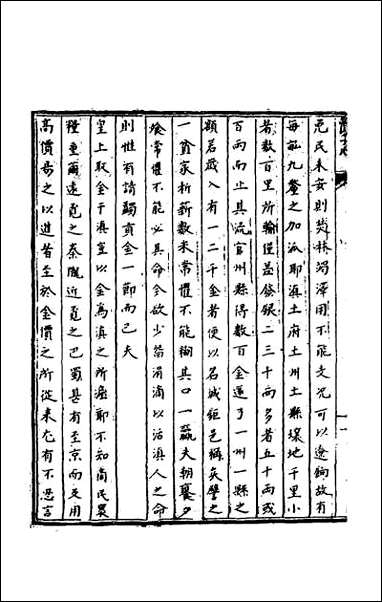 危民未安則焚林竭澤用不能支况可以餉故有
每畝九釐之加派耶滇土府土州土縣壤地千里小
者數百里所輸僅差發銀二三十両多者五十両或
百両而止其流官州縣得數百金遂了一州一縣之
額若歲入有一二千金者便以名城鉅邑稱矣譬之
一貧家析薪數米常懼不能糊其口一羸夫朝饔夕
飧常懼不能必其命今欲少留涓滴以活滇人之命
則惟有請蠲貢金一節而已夫
皇上取金于滇豈以金爲滇之所產耶不知商民累
糧重繭遠覓之秦隴近覓之巴蜀甚有至京而又用
高價易之以進者至於金價之所從來尤有不忍言